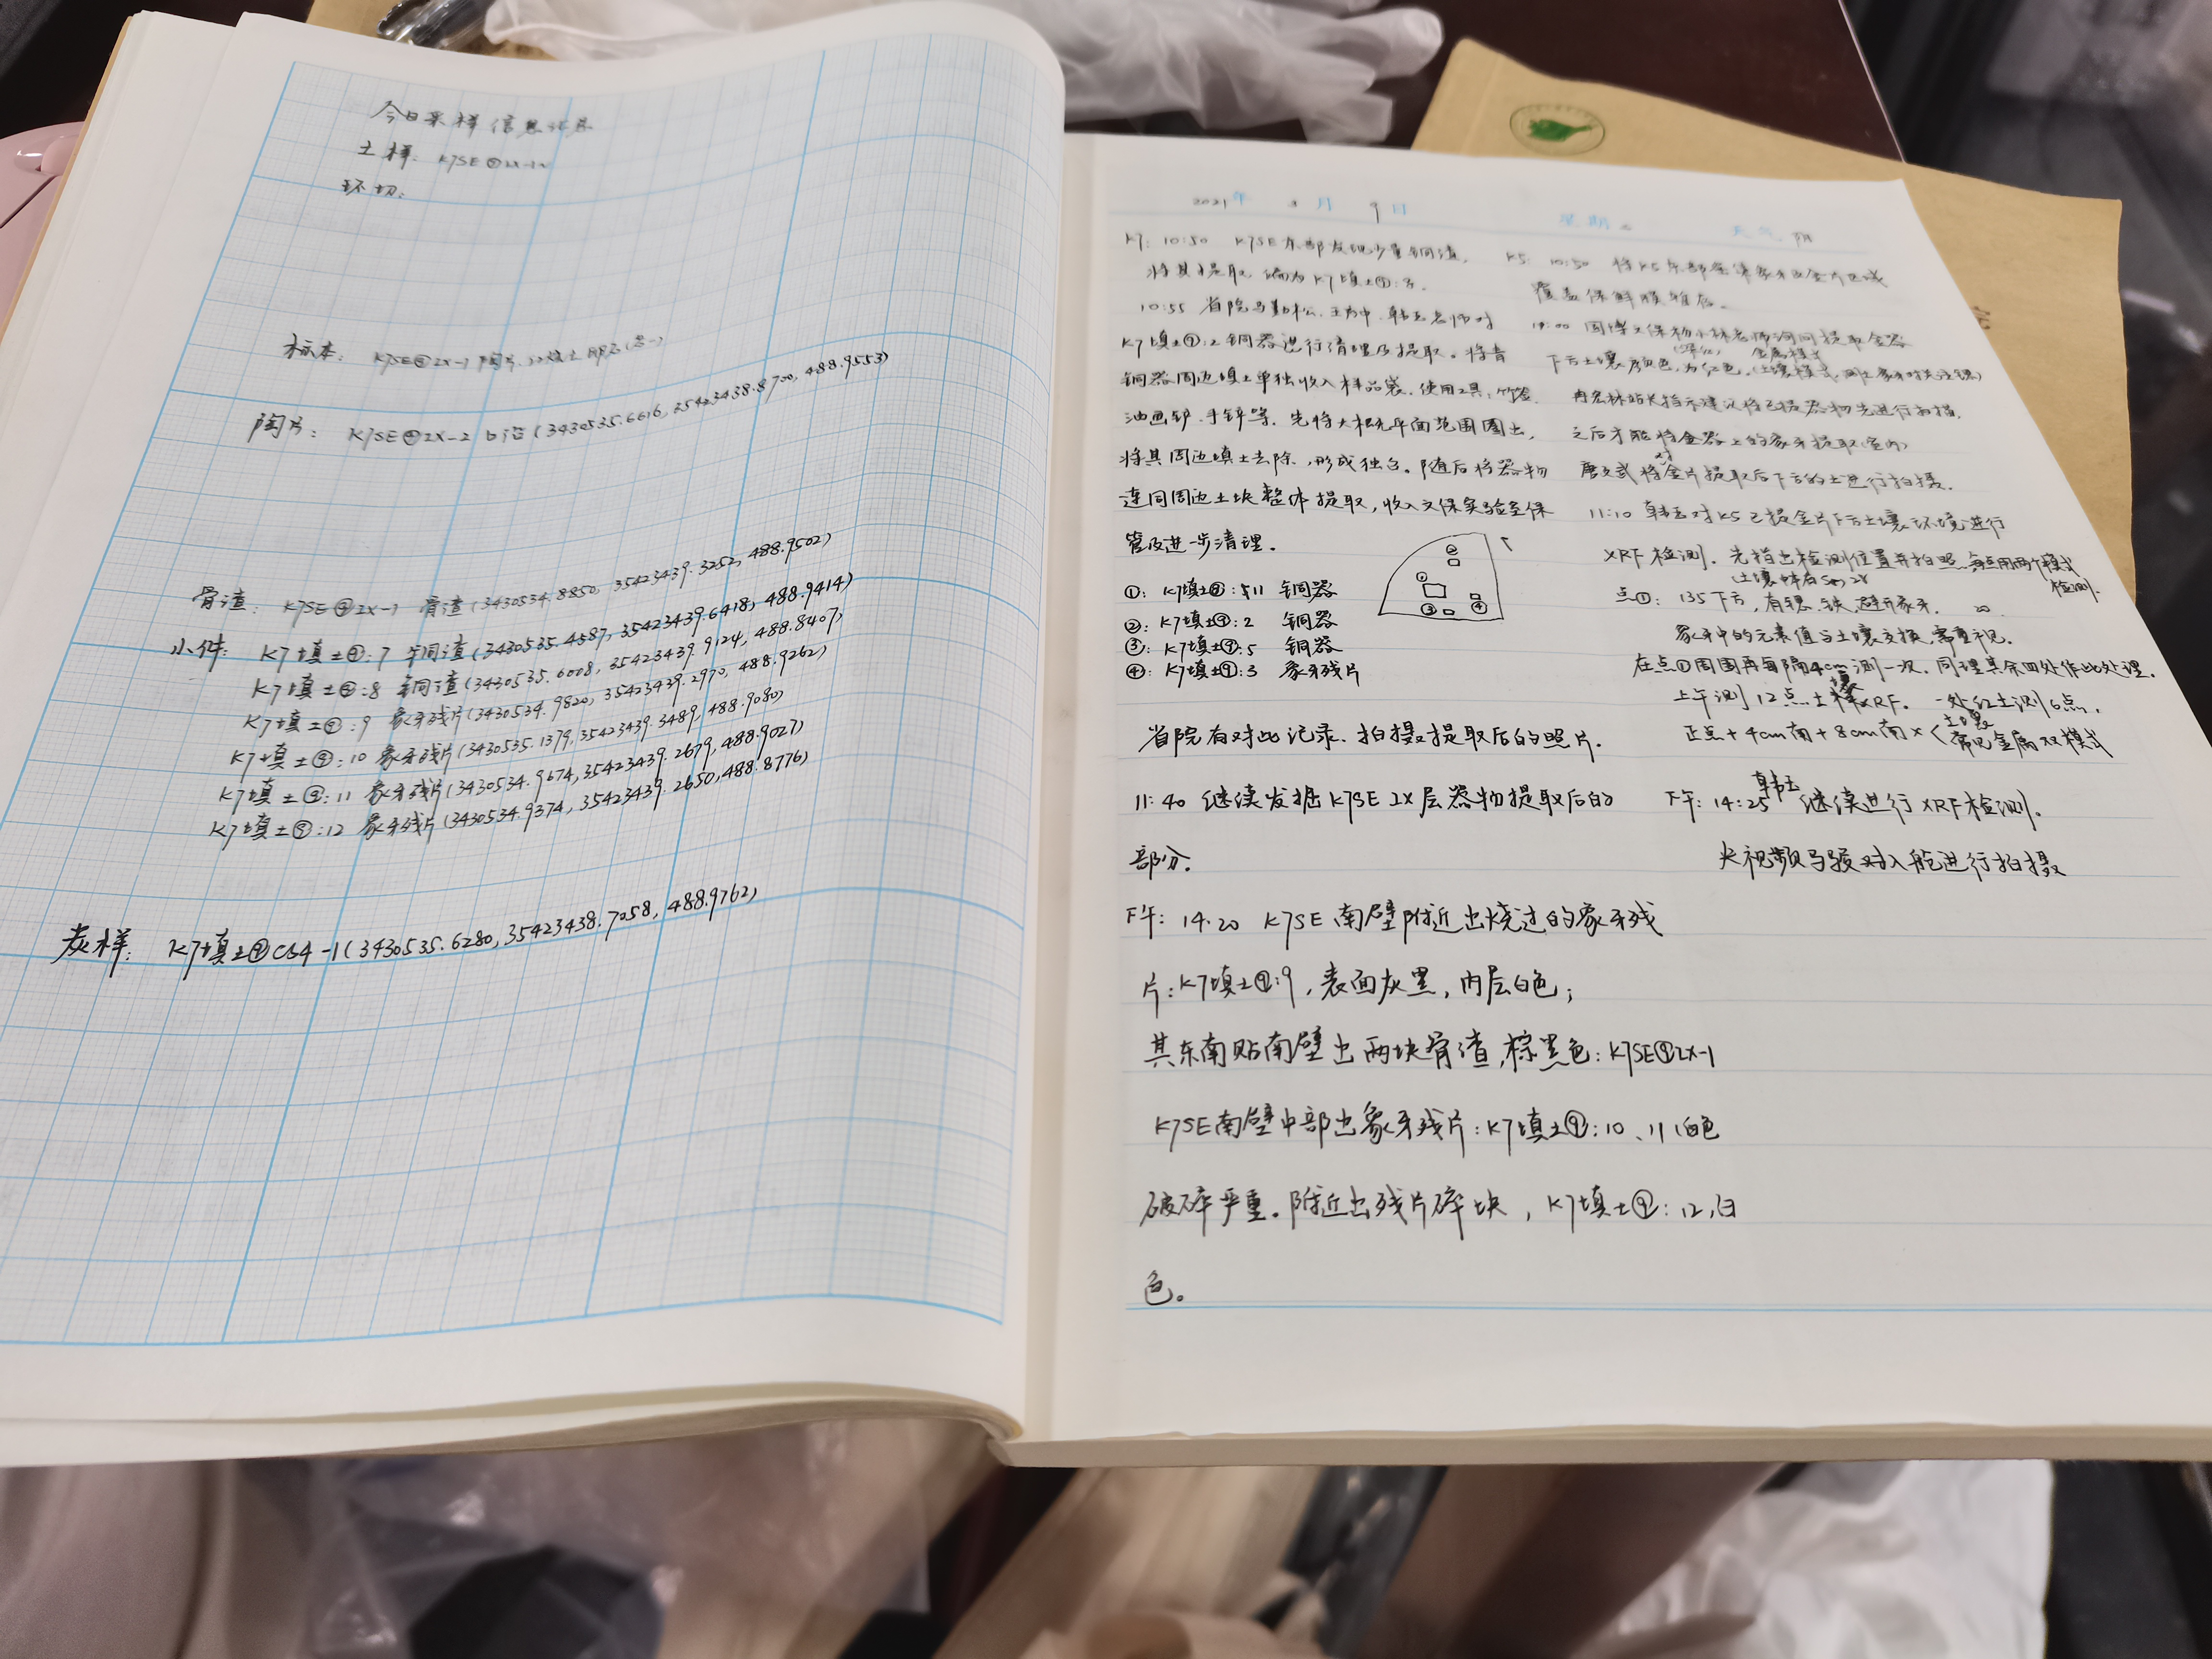 今日采样信息记录
土样: K7SE⑨2X-1
环切:
标本: K7SE⑨2X-1 陶片
陶片: K7SE⑨2X-2 (3430535.6616, 35423438.8700, 488.9553)
骨渣: K7SE⑨2X-1 骨渣(3430534.8850, 35423439.3252, 488.9502)
小件: K7填土⑨:7 铜渣(3430535.4587, 35423439.6418, 488.9414)
K7填土⑨:8 铜渣(3430535.6008, 35423439.9124, 488.8407)
K7填土⑨:9 象牙残片(3430534.9820, 35423439.2970, 488.9262)
K7填土⑨:10 象牙残片(3430535.1379, 35423439.3489, 488.9080)
K7填土⑨:11 象牙残片(3430534.9674, 35423439.2679, 488.9027)
K7填土⑨:12 象牙残片(3430534.9374, 35423439.2650, 488.8776)
炭样: K7填土⑨C64-1(3430535.6280, 35423438.7058, 488.9762)
2021年 3月 9日 星期二 天气 阴
K7: 10:50 K7SE东部发现少量铜渣,
将其提取, 编为K7填土⑨:7.
10:55 省院马勤松、王方中、韩玉老师对
K7填土⑨:2铜器进行清理及提取。将青
铜器周边填土单独收入样品袋。使用工具:竹签、
油画铲、手铲等。先将大概平面范围圈出,
将其周边填土去除,形成独台。随后将器物
连同周边土块整体提取,收入文保实验室保
管及进一步清理。
①: K7填土⑧:511 铜器
②: K7填土⑨:2 铜器
③: K7填土⑨:5 铜器
④: K7填土⑨:3 象牙残片
② ① ③ ④
省院有对此记录、拍摄提取后的照片。
11:40 继续发掘K7SE 2X层器物提取后的
部分。
下午: 14:20 K7SE南壁附近出烧过的象牙残
片:K7填土⑨:9,表面灰黑,内层白色;
其东南贴南壁出两块骨渣,棕黑色:K7SE⑨2X-1
K7SE南壁中部出象牙残片:K7填土⑨:10、11,白色
破碎严重。附近出残片碎块,K7填土⑨:12,白
色。
K5: 10:50 将K5东部密集象牙及金片区域
覆盖保鲜膜
国博文保杨小林老师询问提取金器
下方土壤颜色,为红色。
站长指示建议将已提器物先进行扫描,
之后才能将金器上的象牙提取(室内)
对金片提取后下方的土进行拍摄。
11:10 韩玉对K5已提金片下方土壤环境进行
XRF检测。先指出检测位置并拍照,每点用两个模式
检测。
点①: 135下方,有锶、铁,避开象牙。
象牙中的元素值与土壤交换,需重视。
在点①周围再每隔4cm测一次。同理其余四处作此处理。
上午测12点土壤XRF. 一处红土测6点,
正点+4cm南+8cm南×〈土壤 常见金属双模式
下午: 14:25 韩玉继续进行XRF检测。
央视频马骏对入舱进行拍摄